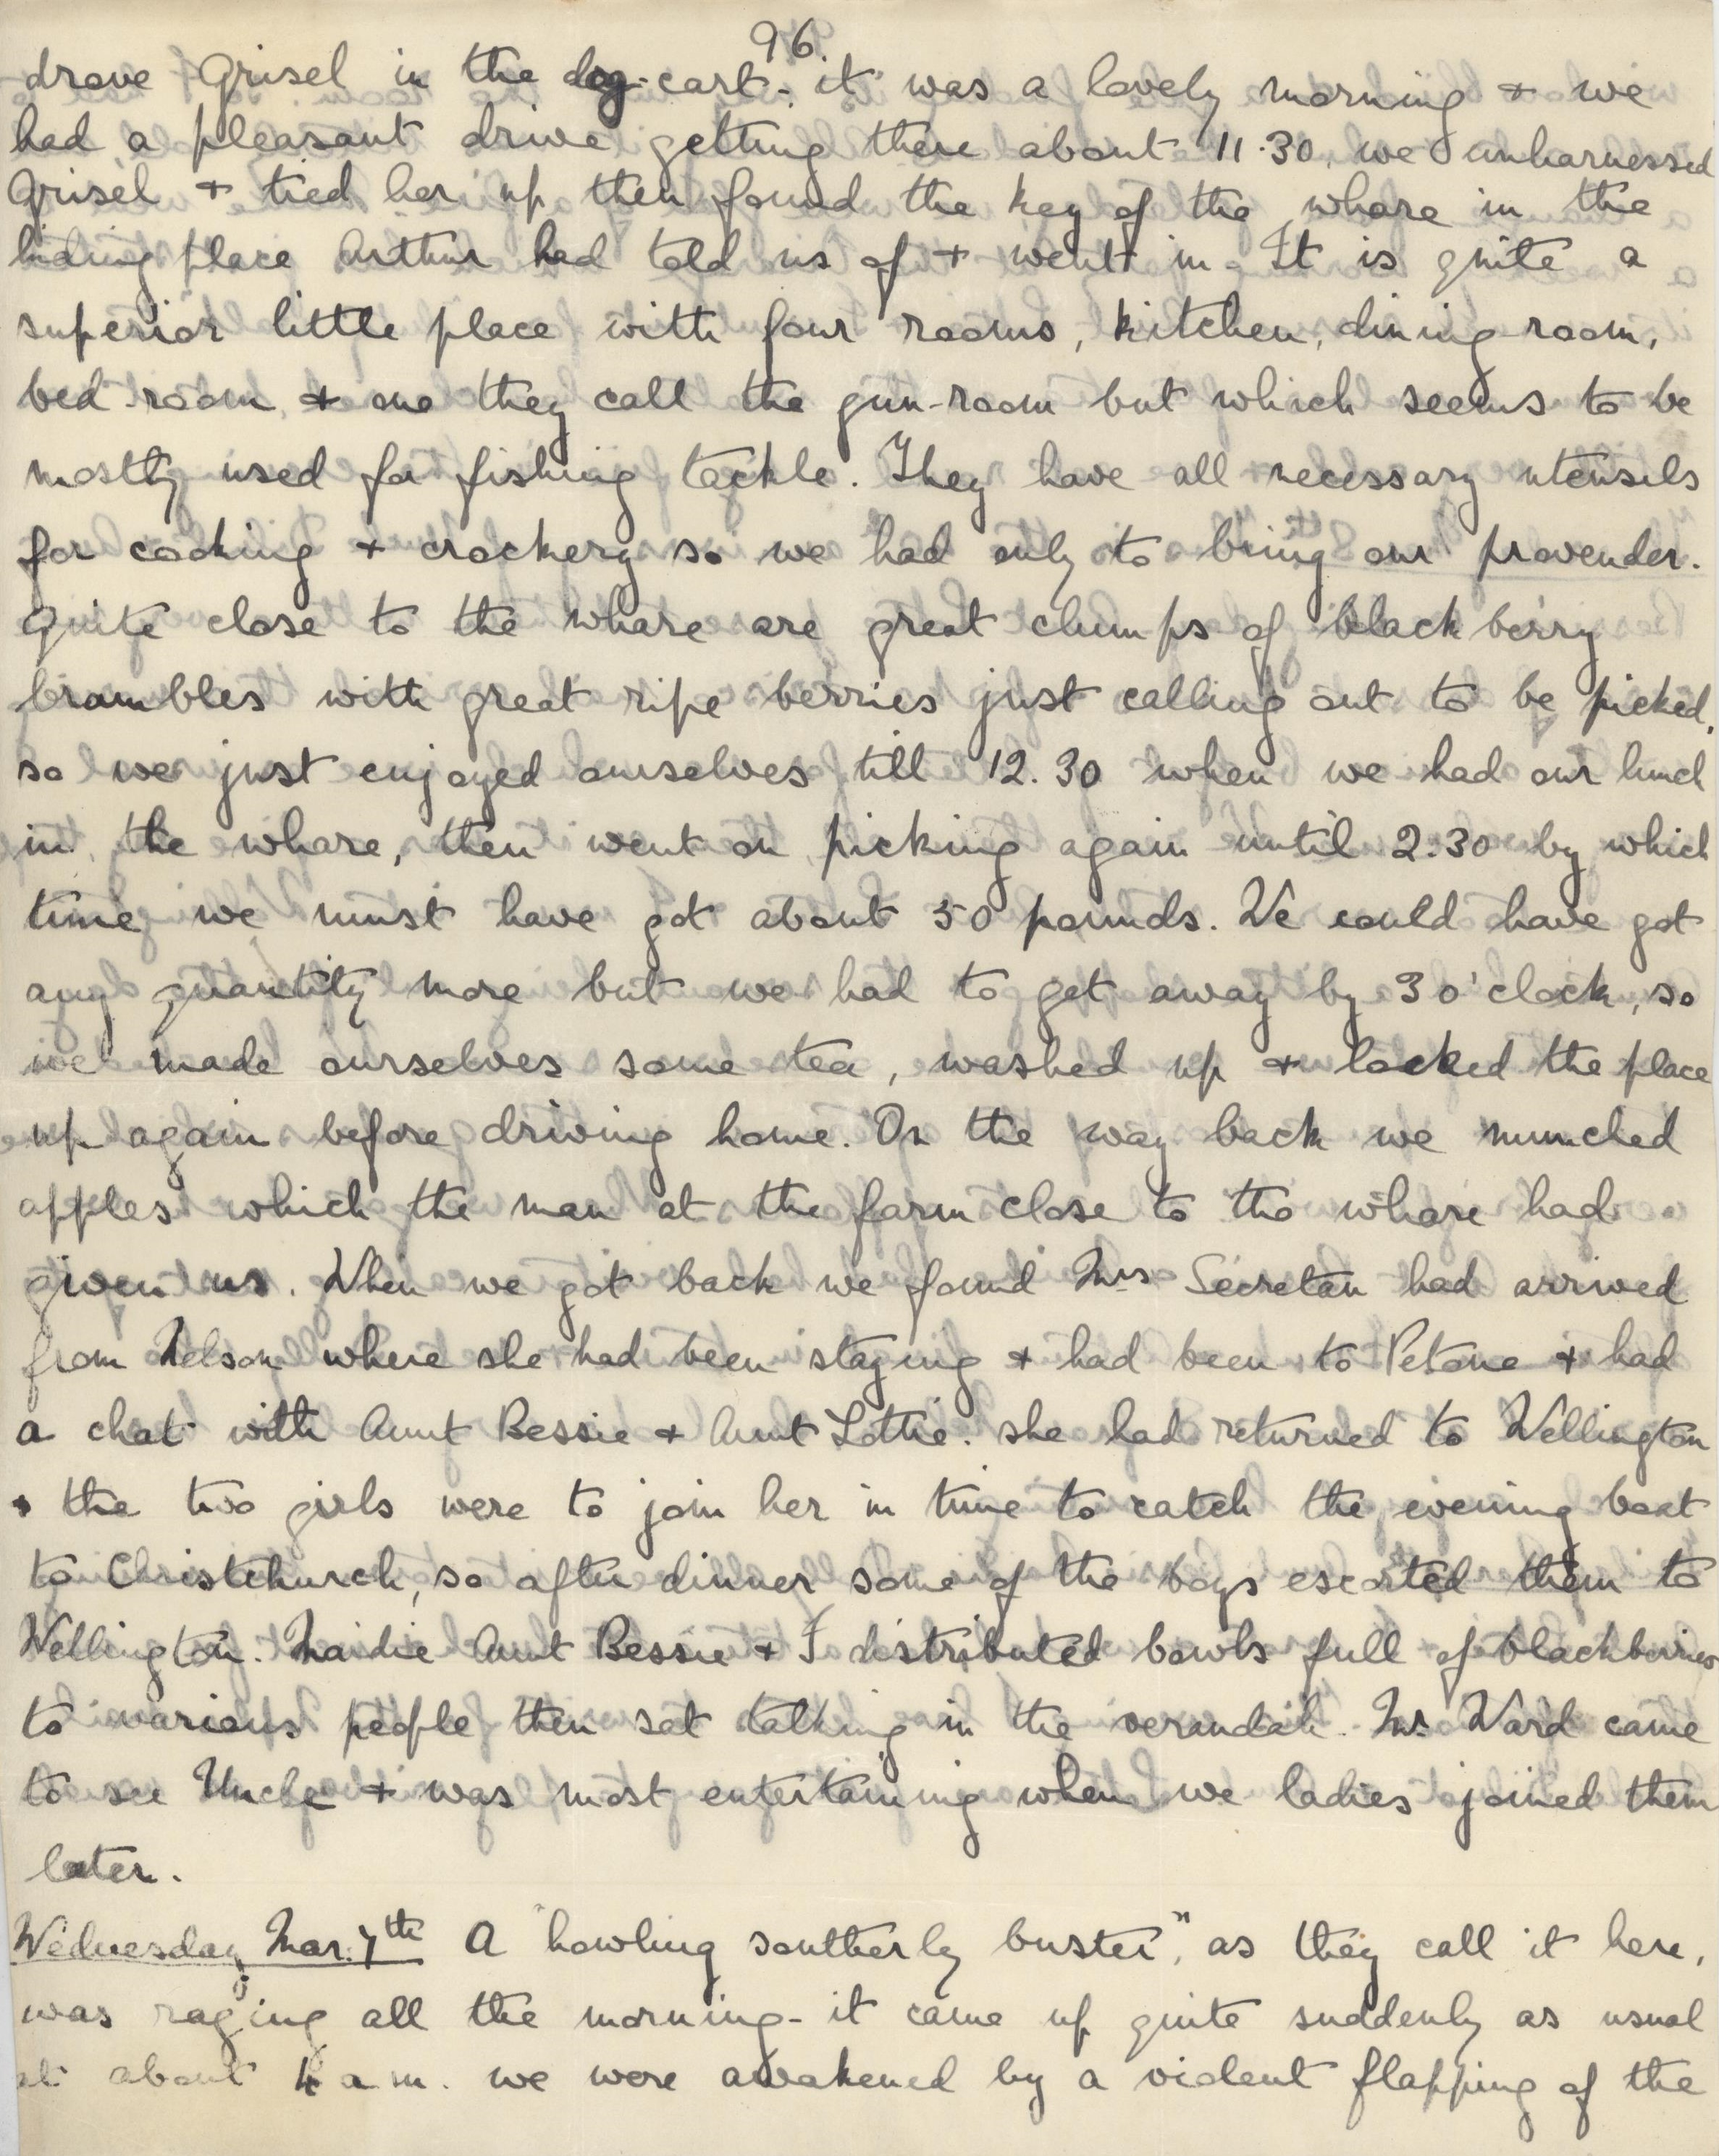 96.
drove Grisel in the dog-cart - it was a lovely morning + we
had a pleasant drive, getting there about 11.30, we unharnessed
Grisel + tied her up then found the key of the whare in the
hiding place Arthur had told us of + went in. It is quite a
superior little place with four rooms, kitchen, dining-room,
bed-room, + one they call the gun-room but which seems to be
mostly used for fishing tackle. They have all necessary utensils
for cooking + crockery so we had only to bring our provender.
Quite close to the whare are great clumps of blackberry
brambles with great ripe berries just calling out to be picked,
so we just enjoyed ourselves till 12.30 when we had our lunch
in the whare, then went on picking again until 2.30 by which
time we must have got about 50 pounds. We could have got
any quantity more but we had to get away by 3 o'clock, so
we made ourselves some tea, washed up + locked the place
up again before driving home. On the way back we munched
apples which the man at the farm close to the whare had
given us. When we got back we found Mrs Secretan had arrived
from Nelson where she had been staying + had been to Petone + had
a chat with Aunt Bessie + Aunt Lottie. she had returned to Wellington
+ the two girls were to join her in time to catch the evening boat
to Christchurch, so after dinner some of the boys escorted them to
Wellington. Maidie Aunt Bessie + I distributed bowls full of blackberries
to various people then sat talking in the verandah. Mr. Ward came
to see Uncle + was most entertaining when we ladies joined them
later.
Wednesday Mar. 7th A "howling southerly buster", as they call it here,
was raging all the morning - it came up quite suddenly as usual
at about 4 a.m. we were awakened by a violent flapping of the